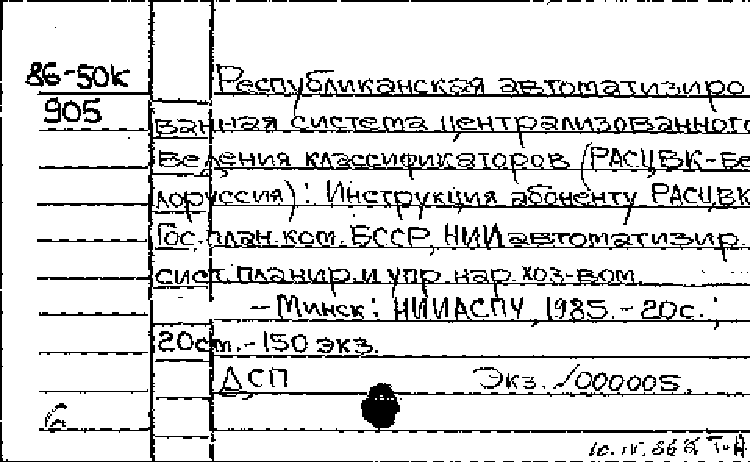 86-50к Республиканская автоматизиро
905 ванная система централизованного
ведения классификаторов (РАСЦВК-Бе
лоруссия): Инструкция абоненту РАСЦВК
Гос. план. ком. БССР, НИИ автоматизир.
сист. планир. и упр. нар. хоз-вом.
— Минск: НИИАСПУ, 1985. - 20с.;
20см. - 150 экз.
ДСП Экз. √000005.
10.IV.86